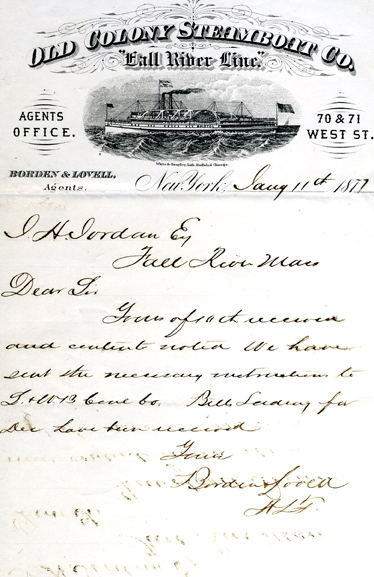 OLD COLONY STEAMBOAT CO.
"Fall River Line."
AGENTS OFFICE.
70 & 71 WEST ST.
BORDEN & LOVELL,
Agents.
New York, Jany 11th 1877
J H Jordan Eq
Fall River Mass
Dear Sir
Yours of 10th received
and contents noted We have
sent the necessary instructions to
& WB Coal Co. Bills Lading for
Dec have been received
Yours
Borden & Lovell